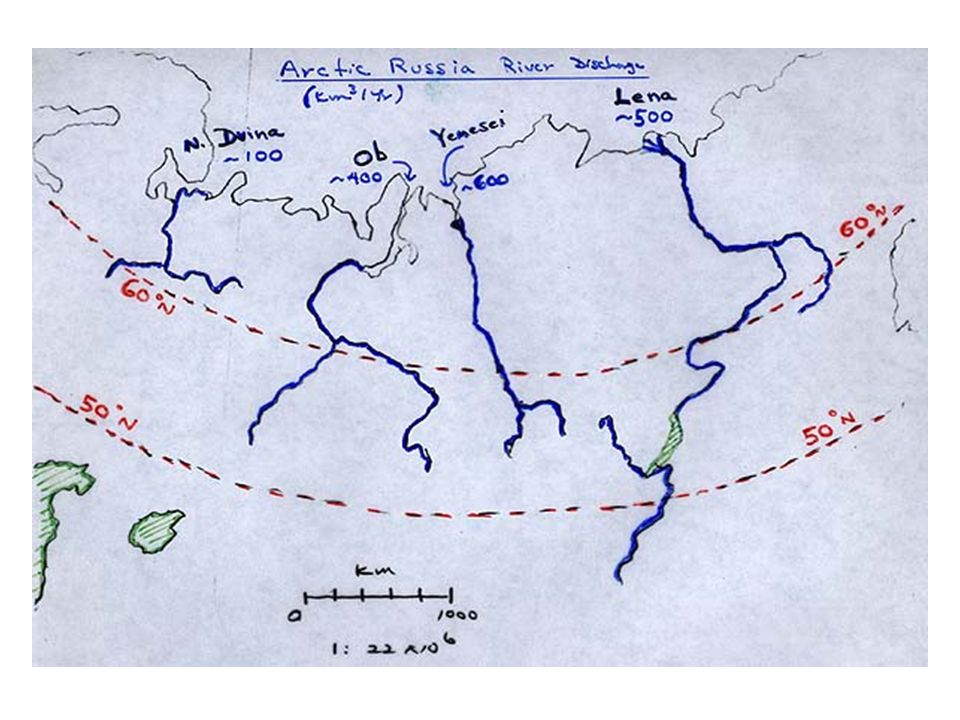 Arctic Russia River Discharge
(km³/yr)
Lena
~500
N. Dvina
~100
Ob
~400
Yenesei
~600
60°N
60°N
50°N
50°N
km
0 1000
1: 22 x10⁶